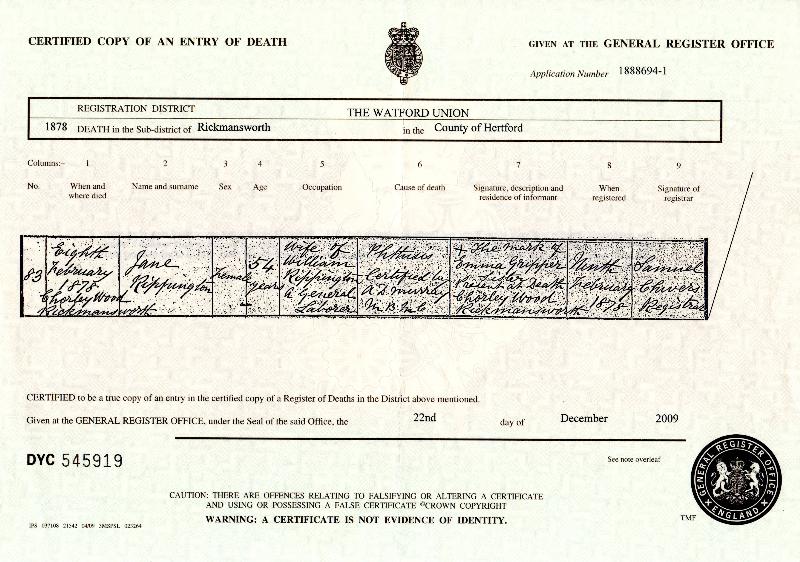 CERTIFIED COPY OF AN ENTRY OF DEATH
GIVEN AT THE GENERAL REGISTER OFFICE
Application Number 1888694-1
REGISTRATION DISTRICT THE WATFORD UNION
1878 DEATH in the Sub-district of Rickmansworth in the County of Hertford
Columns:- 1 2 3 4 5 6 7 8 9
No. When and where died Name and surname Sex Age Occupation Cause of death Signature, description and residence of informant When registered Signature of registrar
83
Eighth
February
1878
Chorley Wood
Rickmansworth
Jane
Rippington
Female
54
years
Wife of
William
Rippington
a General
Laborer
Phthisis
Certified by
M.B.
X The mark of
Emma Gripper
Present at Death
Chorley Wood
Rickmansworth
Ninth
February
1878
Samuel
Chivers
Registrar
CERTIFIED to be a true copy of an entry in the certified copy of a Register of Deaths in the District above mentioned.
Given at the GENERAL REGISTER OFFICE, under the Seal of the said Office, the 22nd day of December 2009
DYC 545919
See note overleaf
GENERAL REGISTER OFFICE
ENGLAND
CAUTION: THERE ARE OFFENCES RELATING TO FALSIFYING OR ALTERING A CERTIFICATE
AND USING OR POSSESSING A FALSE CERTIFICATE ©CROWN COPYRIGHT
WARNING: A CERTIFICATE IS NOT EVIDENCE OF IDENTITY.